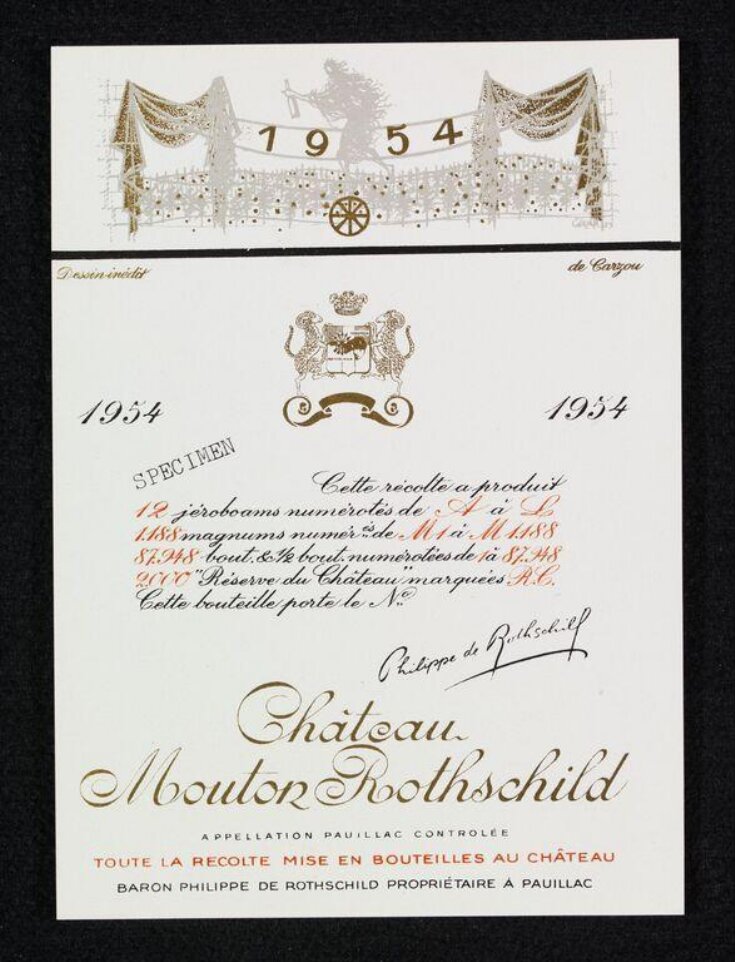 1954
Dessin inédit
de Carzou
1954
1954
SPECIMEN
Cette récolte a produit
12 jéroboams numérotés de A à L
1.188 magnums numér.és de M1 à M 1.188
87.948 bout. & ½ bout. numérotées de 1 à 87.948
2000 "Réserve du Château" marquées R.C.
Cette bouteille porte le No
Philippe de Rothschild
Château
Mouton Rothschild
APPELLATION PAUILLAC CONTROLÉE
TOUTE LA RECOLTE MISE EN BOUTEILLES AU CHÂTEAU
BARON PHILIPPE DE ROTHSCHILD PROPRIÉTAIRE À PAUILLAC